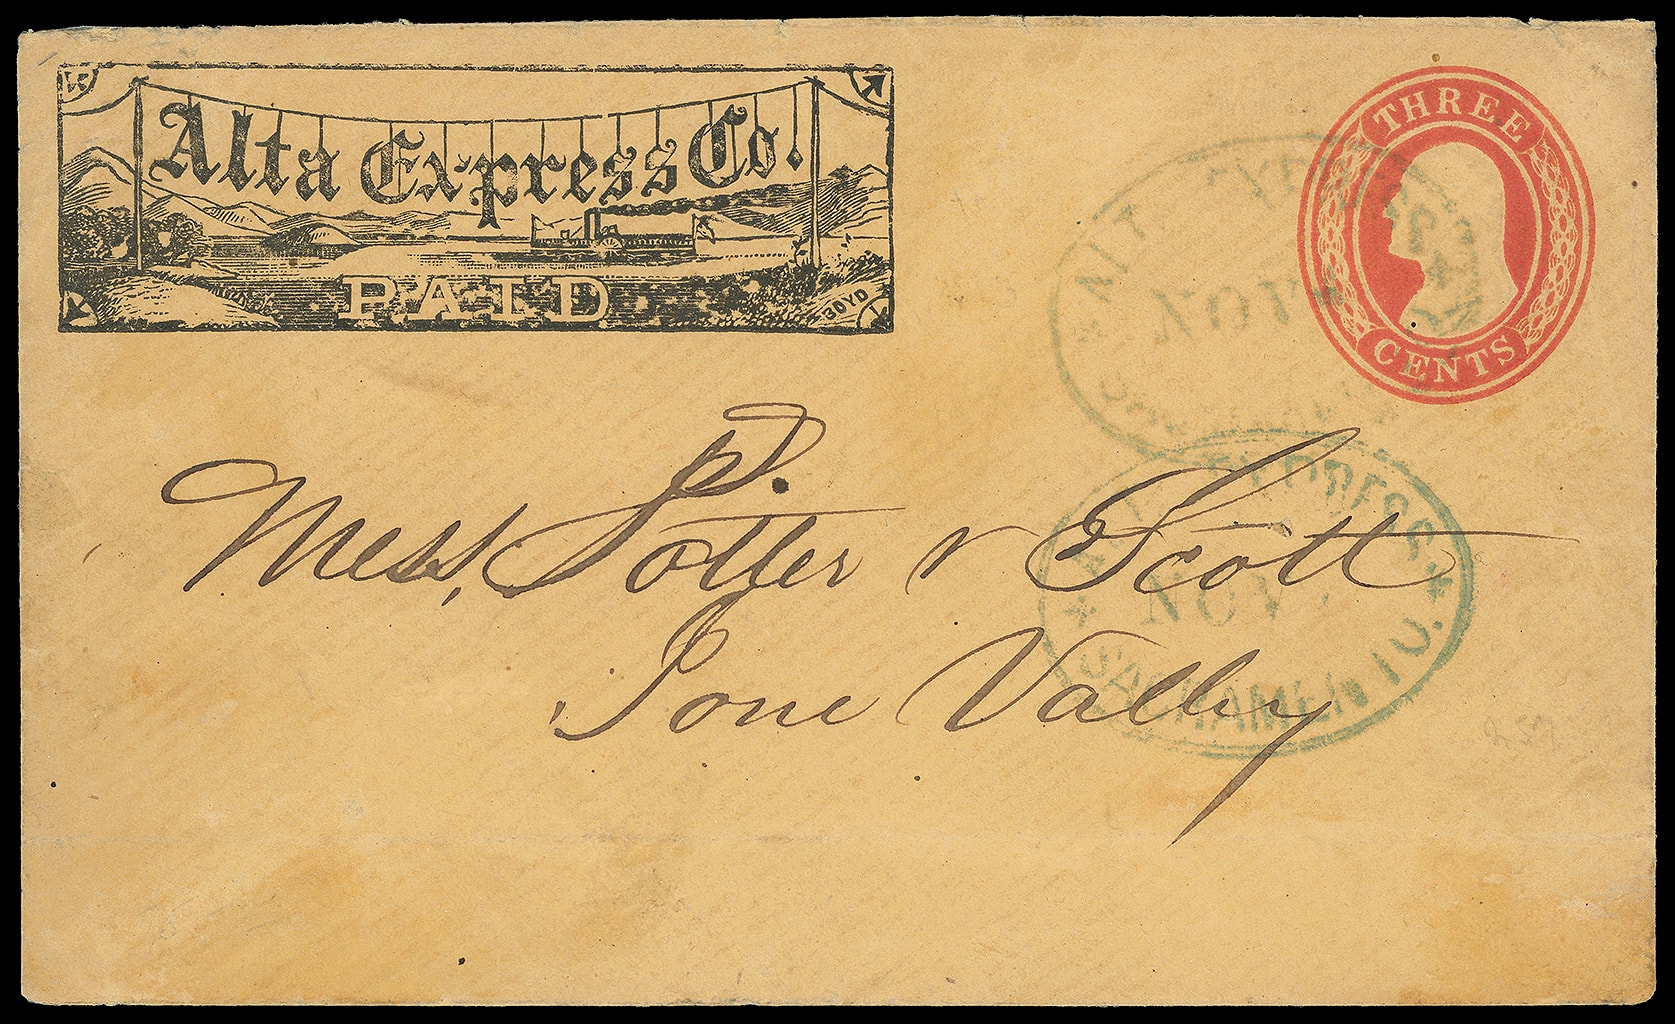 Alta Express Co.
PAID
BOYD
THREE
CENTS
NOV
EXPRESS CO.
NOV
SACRAMENTO
Mess, P.
Potter & Scott
Ione Valley